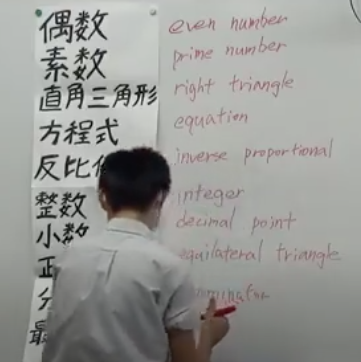 偶数 even number
素数 prime number
直角三角形 right triangle
方程式 equation
反比 inverse proportional
整数 integer
小数 decimal point
equilateral triangle